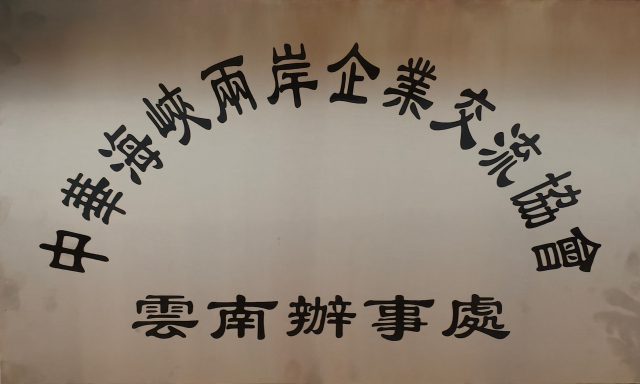 中華海峽兩岸企業交流協會
雲南辦事處